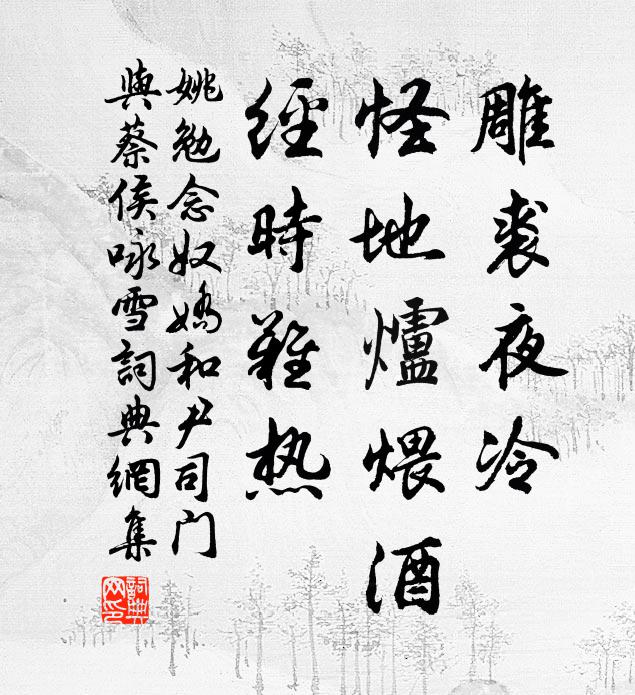 雕裘夜冷
怪地爐煨酒
經時難热
姚勉念奴嬌和尹司门
與蔡侯咏雪詞典網集
詞典网印